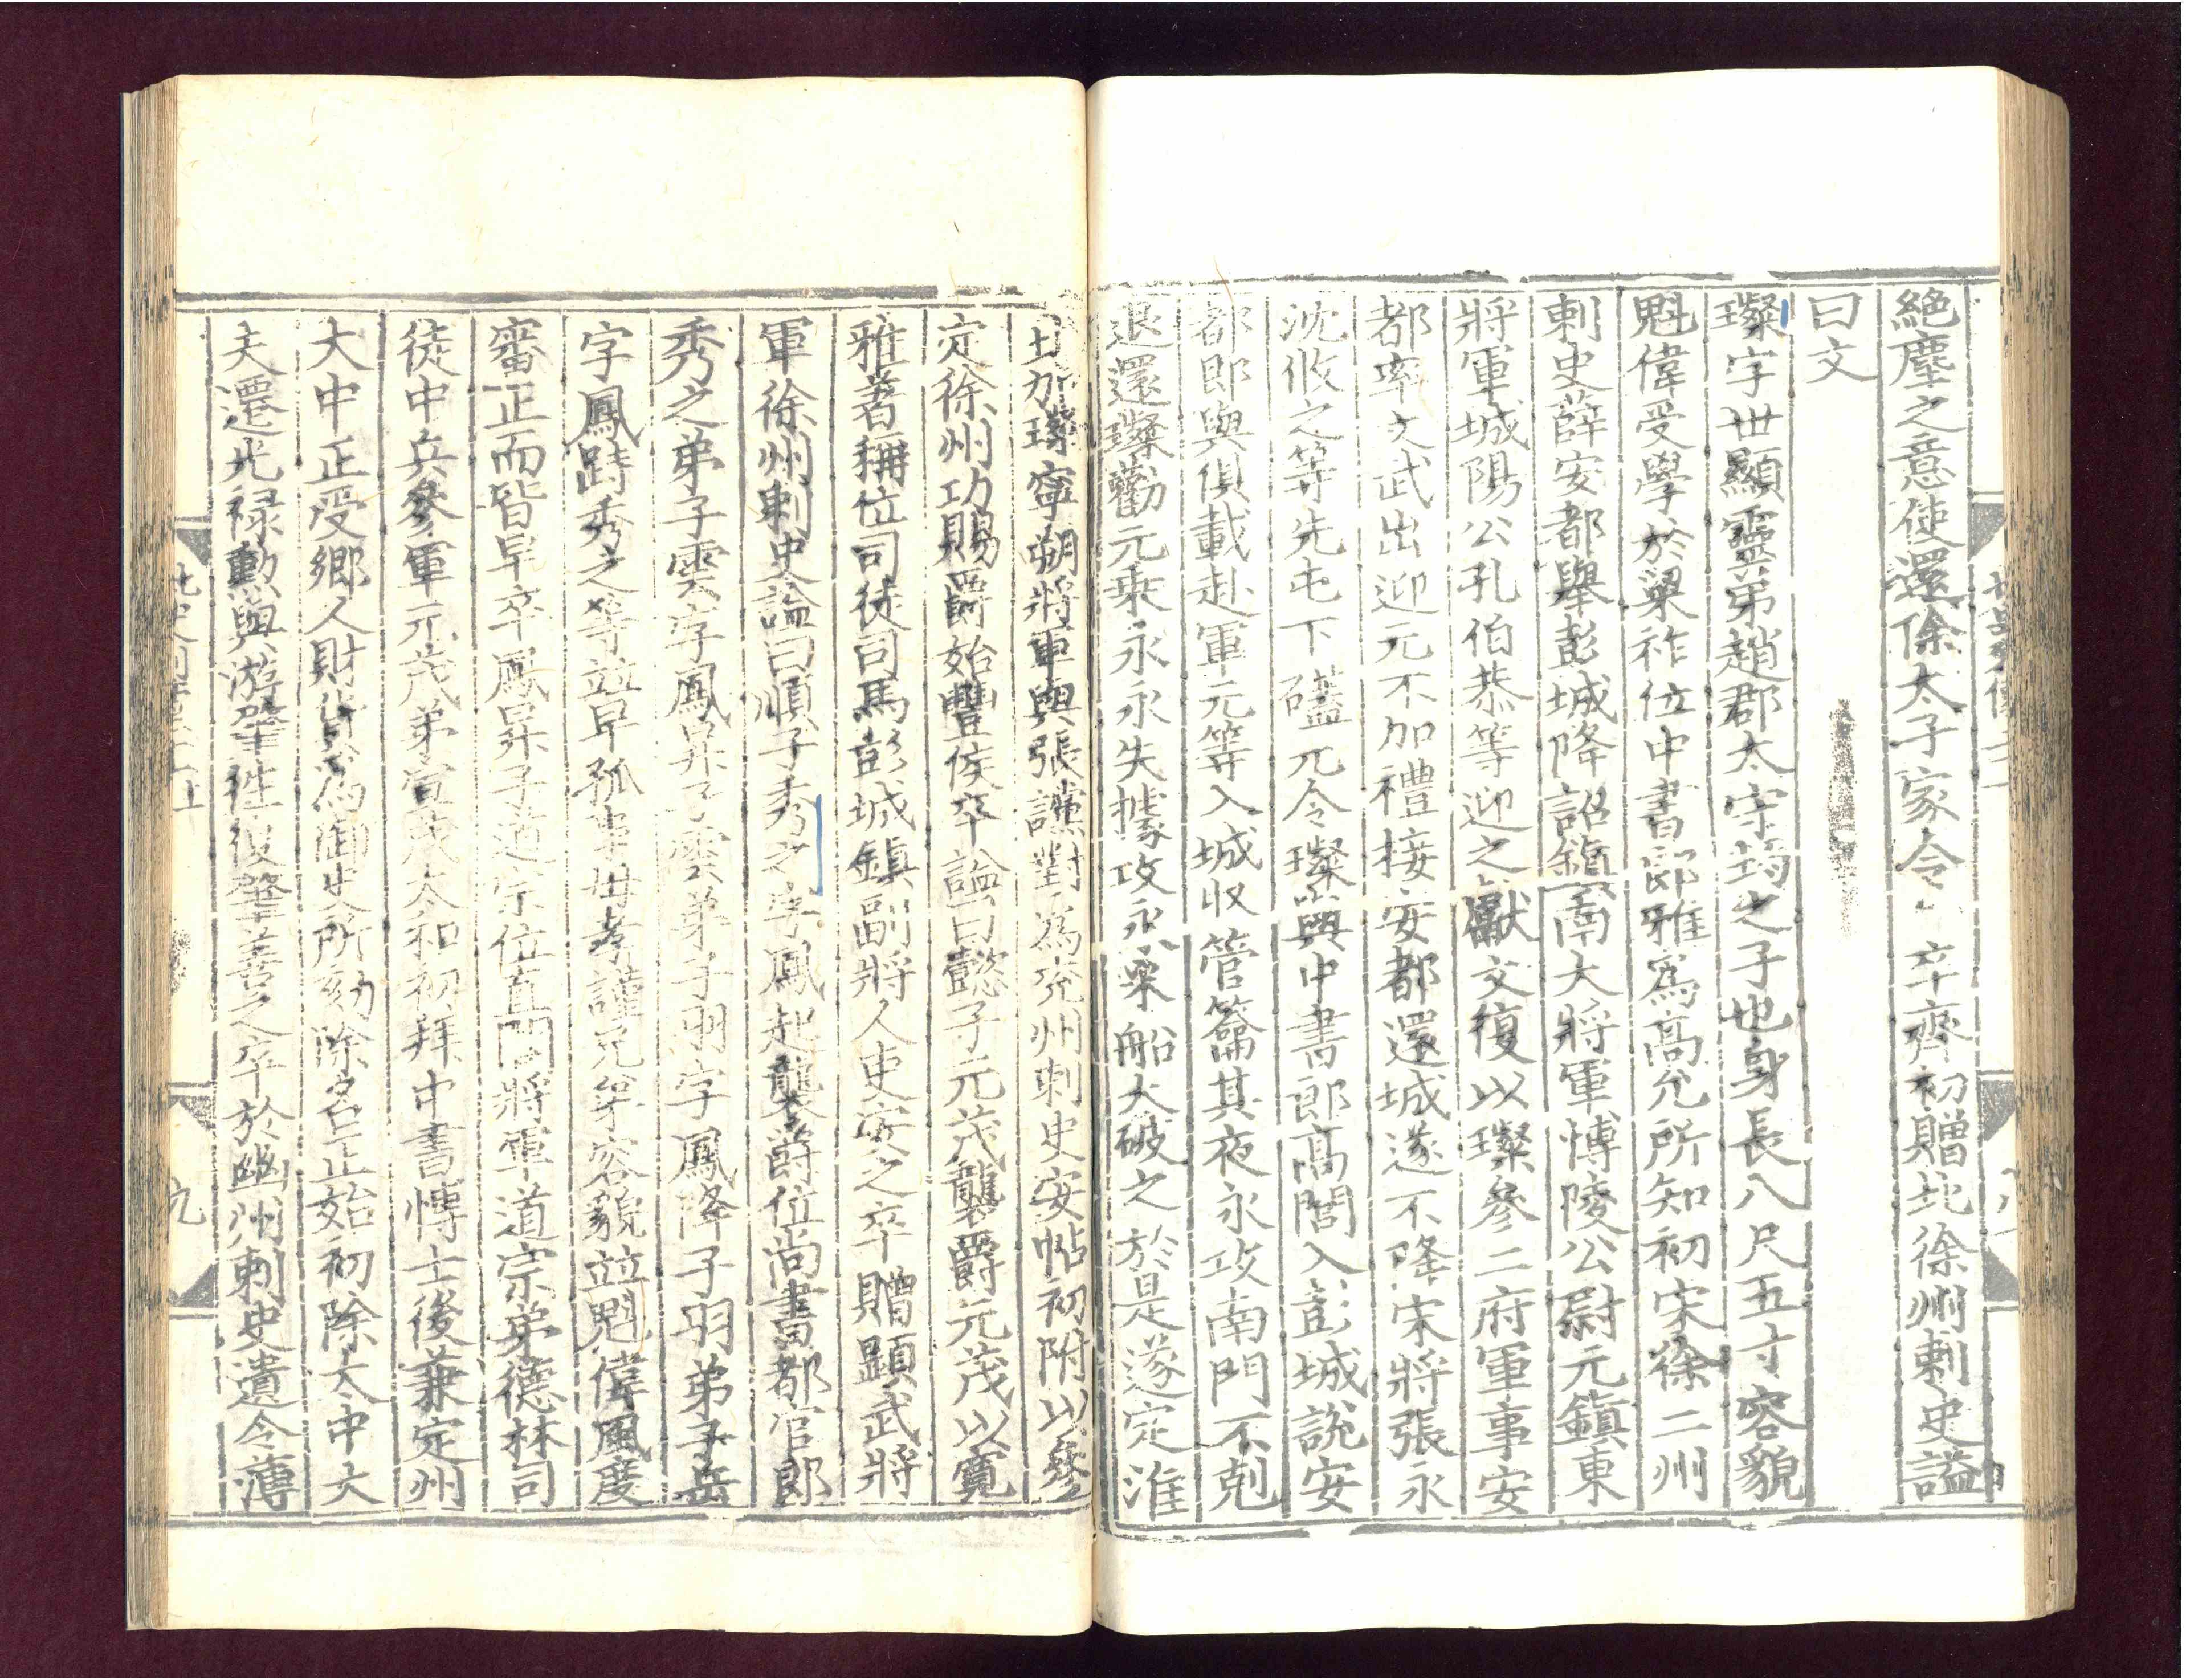 絕塵之意使還除太子家令卒齊初贈北徐州刺史謚
曰文
璨字世顯靈弟趙郡太守筠之子也身長八尺五寸容貌
魁偉受學於梁祚位中書郎雅爲高允所知初宋徐二州
刺史薛安都舉彭城降詔鎮南大將軍博陵公尉元鎮東
將軍城陽公孔伯恭等迎之獻文復以璨參二府軍事安
都率文武出迎元不加禮接安都還城遂不降宋將張永
沈攸之等先屯下礚元令璨與中書郎高閭入彭城說安
都即與俱載赴軍元等入城收管籥其夜永攻南門不剋
退還璨勸元乗永永失據攻永乗船大破之於是遂定淮
北加璨寧朔將軍與張讜對爲兖州刺史安帖初附以參
定徐州功賜爵始豐侯卒謚曰懿子元茂襲爵元茂以寬
雅著稱位司徒司馬彭城鎮副將人吏安之卒贈顯武將
軍徐州刺史謚曰順子秀之字鳳起襲爵位尚書都官郎
秀之弟子雲字鳳昇子雲弟子羽字鳳降子羽弟子岳
字鳳跱秀之等並早孤事母孝謹兄弟容貌並魁偉風度
審正而皆早卒鳳昇子道宗位直閤將軍道宗弟德林司
徒中兵參軍元茂弟宣茂太和初拜中書博士後兼定州
大中正受鄉人財貨爲御史所劾除名正始初除太中大
夫遷光祿勳與游肇往復肇善之卒於幽州刺史遺令薄
九